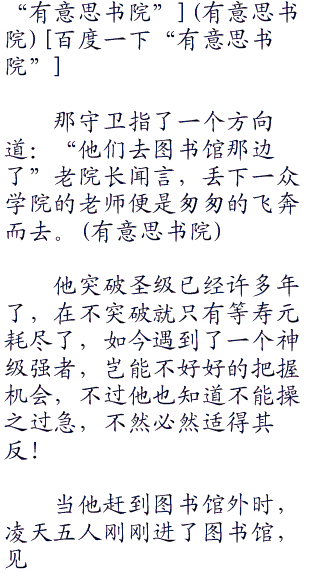 “有意思书院”](有意思书
院)[百度一下“有意思书
院”]
那守卫指了一个方向
道：“他们去图书馆那边
了”老院长闻言，丢下一众
学院的老师便是匆匆的飞奔
而去。(有意思书院)
他突破圣级已经许多年
了，在不突破就只有等寿元
耗尽了，如今遇到了一个神
级强者，岂能不好好的把握
机会，不过他也知道不能操
之过急，不然必然适得其
反！
当他赶到图书馆外时，
凌天五人刚刚进了图书馆，
见